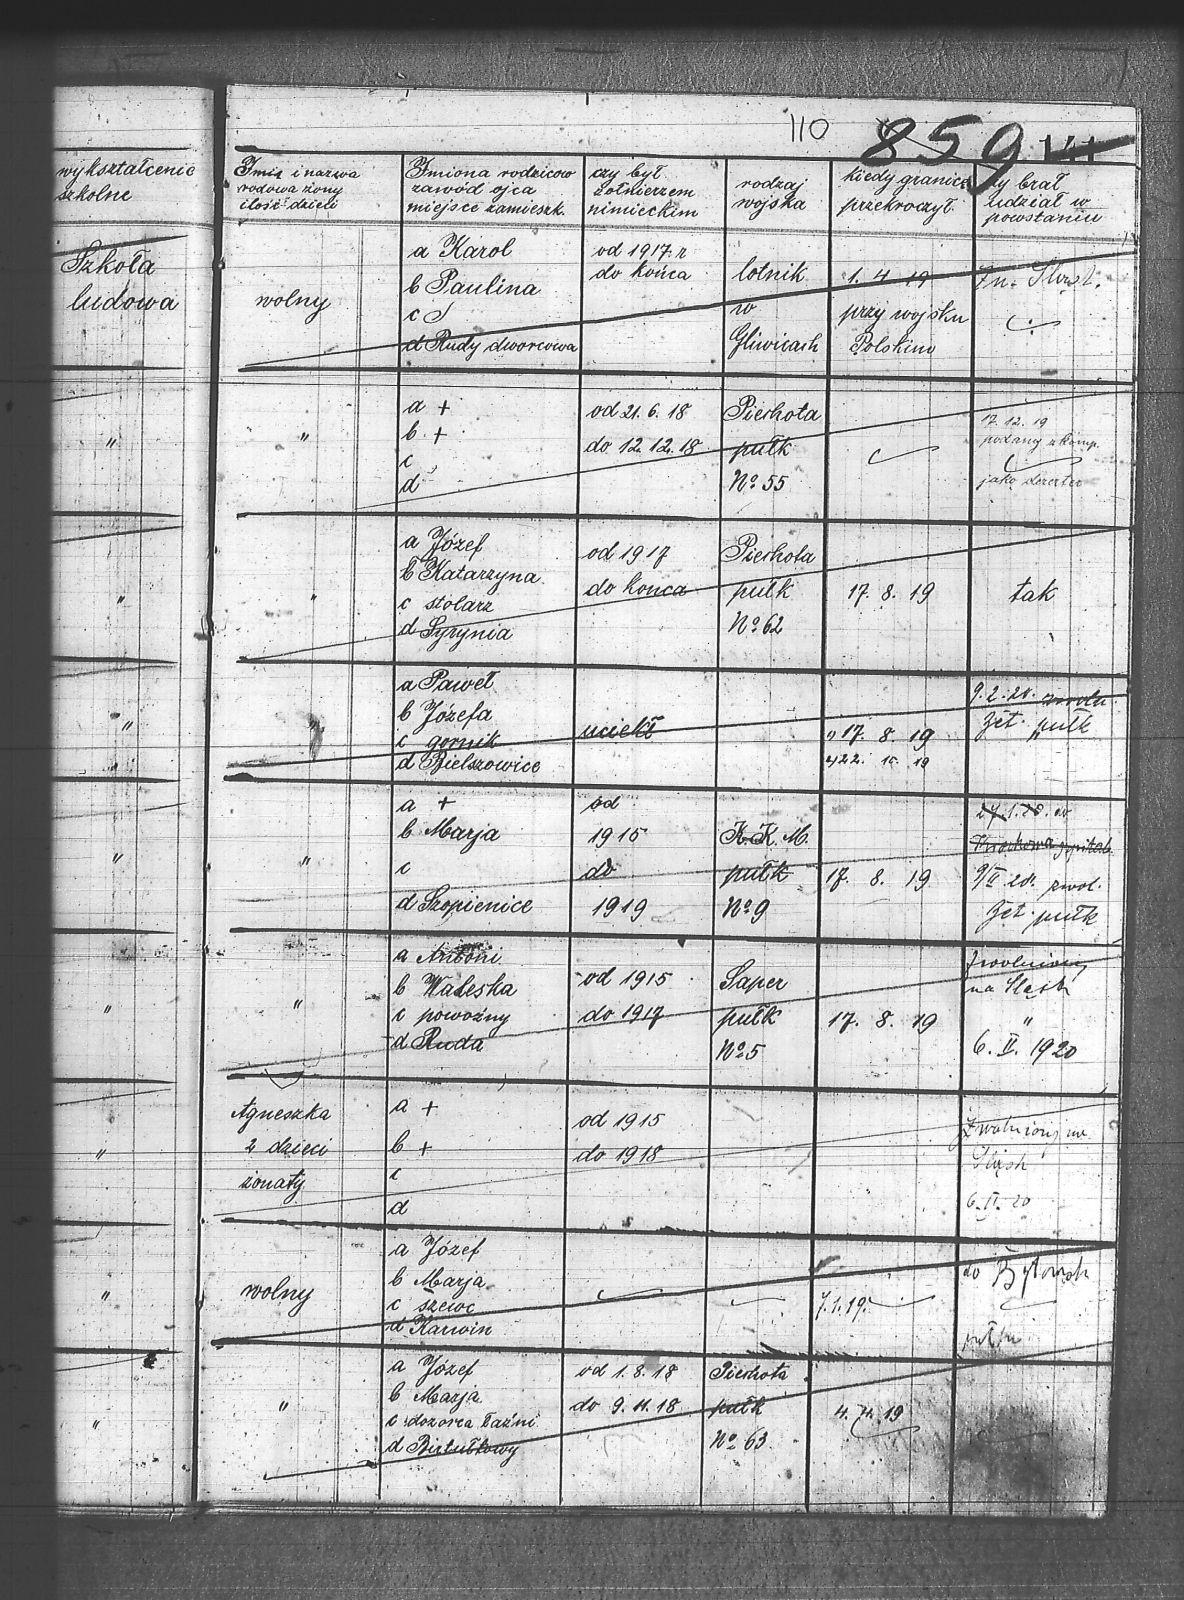 110 859 141
wykształcenie
szkolne
Imię i nazwa
rodowa żony
ilość dzieci
Imiona rodziców
zawód ojca
miejsce zamieszk.
czy był
żołnierzem
nimieckim
rodzaj
wojska
kiedy granicę
przekroczył
czy brał
udział w
powstaniu
Szkoła
ludowa
wolny
a Karol
b Paulina
c
d Rudy dworcowa
od 1917 r
do końca
lotnik
w
Gliwicach
1. 4 19
przy wojsku
Polskim
"
"
a +
b +
c
d
od 21. 6. 18
do 12. 12. 18
Piechota
pułk
No 55
17. 12. 19
podany z komp.
jako dezerter
"
"
a Józef
b Katarzyna
c stolarz
d Syrynia
od 1917
do konca
Piechota
pułk
No 62
17. 8. 19
tak
"
"
a Paweł
b Józefa
c gornik
d Bielszowice
uciekł
" 17. 8. 19
9. 2. 20.
pułk
"
"
a +
b Marja
c
d Szopienice
od
1915
do
1919
K. K. M.
pułk
No 9
17. 8. 19
9/II 20. zwol.
pułk
"
"
a Antoni
b Waleska
c powoźny
d Ruda
od 1915
do 1917
Saper
pułk
No 5
17. 8. 19
Zwolniony
na Śląsk
"
6. II. 1920
"
Agneszka
2 dzieci
żonaty
a +
b +
c
d
od 1915
do 1918
Zwolniony na
Śląsk
6. II. 20
"
wolny
a Józef
b Marja
c szewc
d Karwin
7. 1. 19.
do Bytomsk
pułku
"
"
a Józef
b Marja
c dozorca łaźni
d
od 1. 8. 18
do 9. 11. 18
Piechota
pułk
No 63.